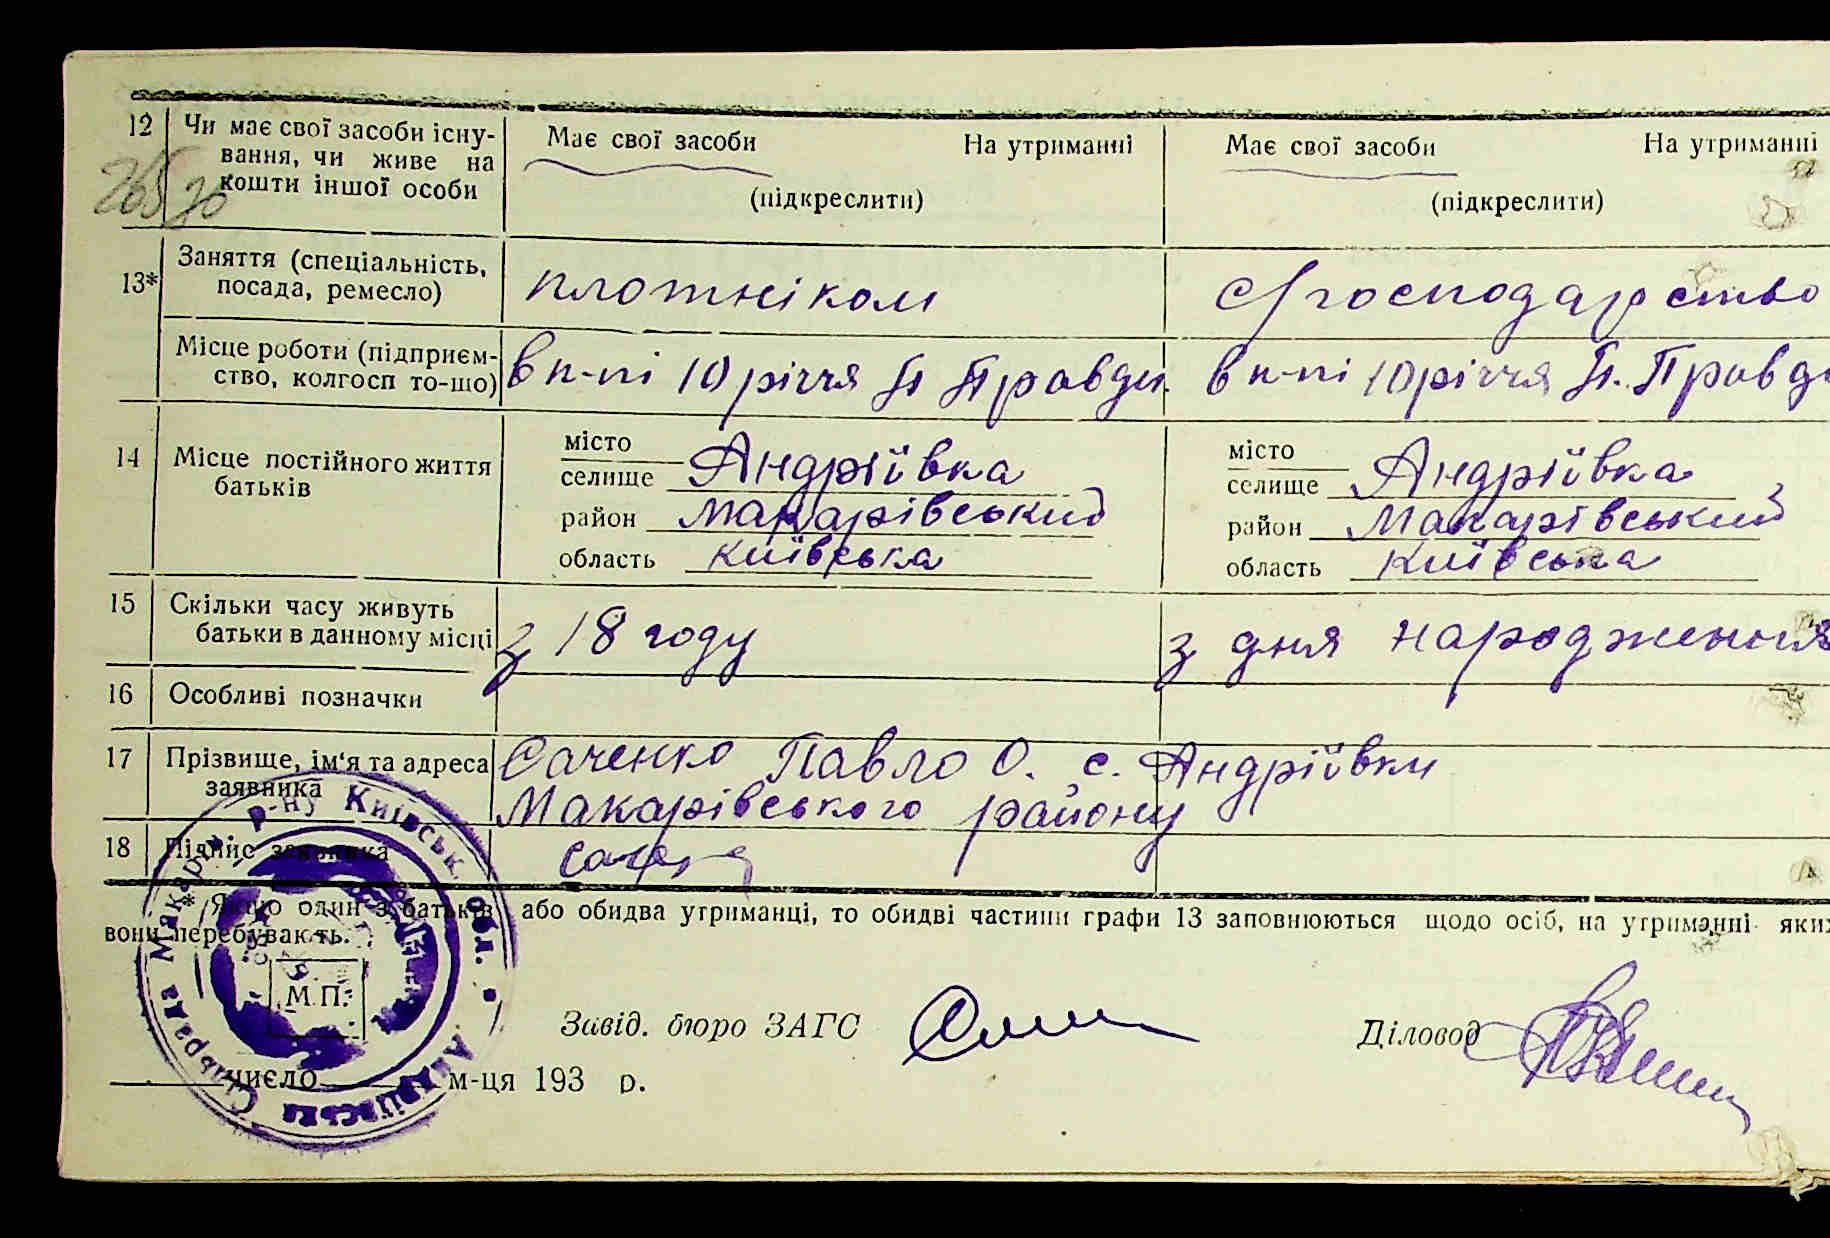 12 Чи має свої засоби існу- Має свої засоби На утриманні Має свої засоби На утриманні
вання, чи живе на
кошти іншої особи (підкреслити) (підкреслити)
265
13* Заняття (спеціальність, плотніком с/господарство
посада, ремесло)
Місце роботи (підприєм- в к-пі 10 річчя П Правди в к-пі 10 річчя П. Правди
ство, колгосп то-що)
14 Місце постійного життя батьків
місто місто
селище Андріївка селище Андріївка
район Макарівський район Макарівський
область Київська область Київська
15 Скільки часу живуть з 18 году з дня народження
батьки в данному місці
16 Особливі позначки
17 Прізвище, ім'я та адреса Саченко Павло О. с. Андріївки
заявника Макарівського району
18 Підпис заявника
* Якщо один з батьків або обидва утриманці, то обидві частини графи 13 заповнюються щодо осіб, на утриманні яких
вони перебувають.
М.П.
Завід. бюро ЗАГС Діловод
число м-ця 193 р.
Андріївська Сільрада Макар. р-ну Київськ. обл.